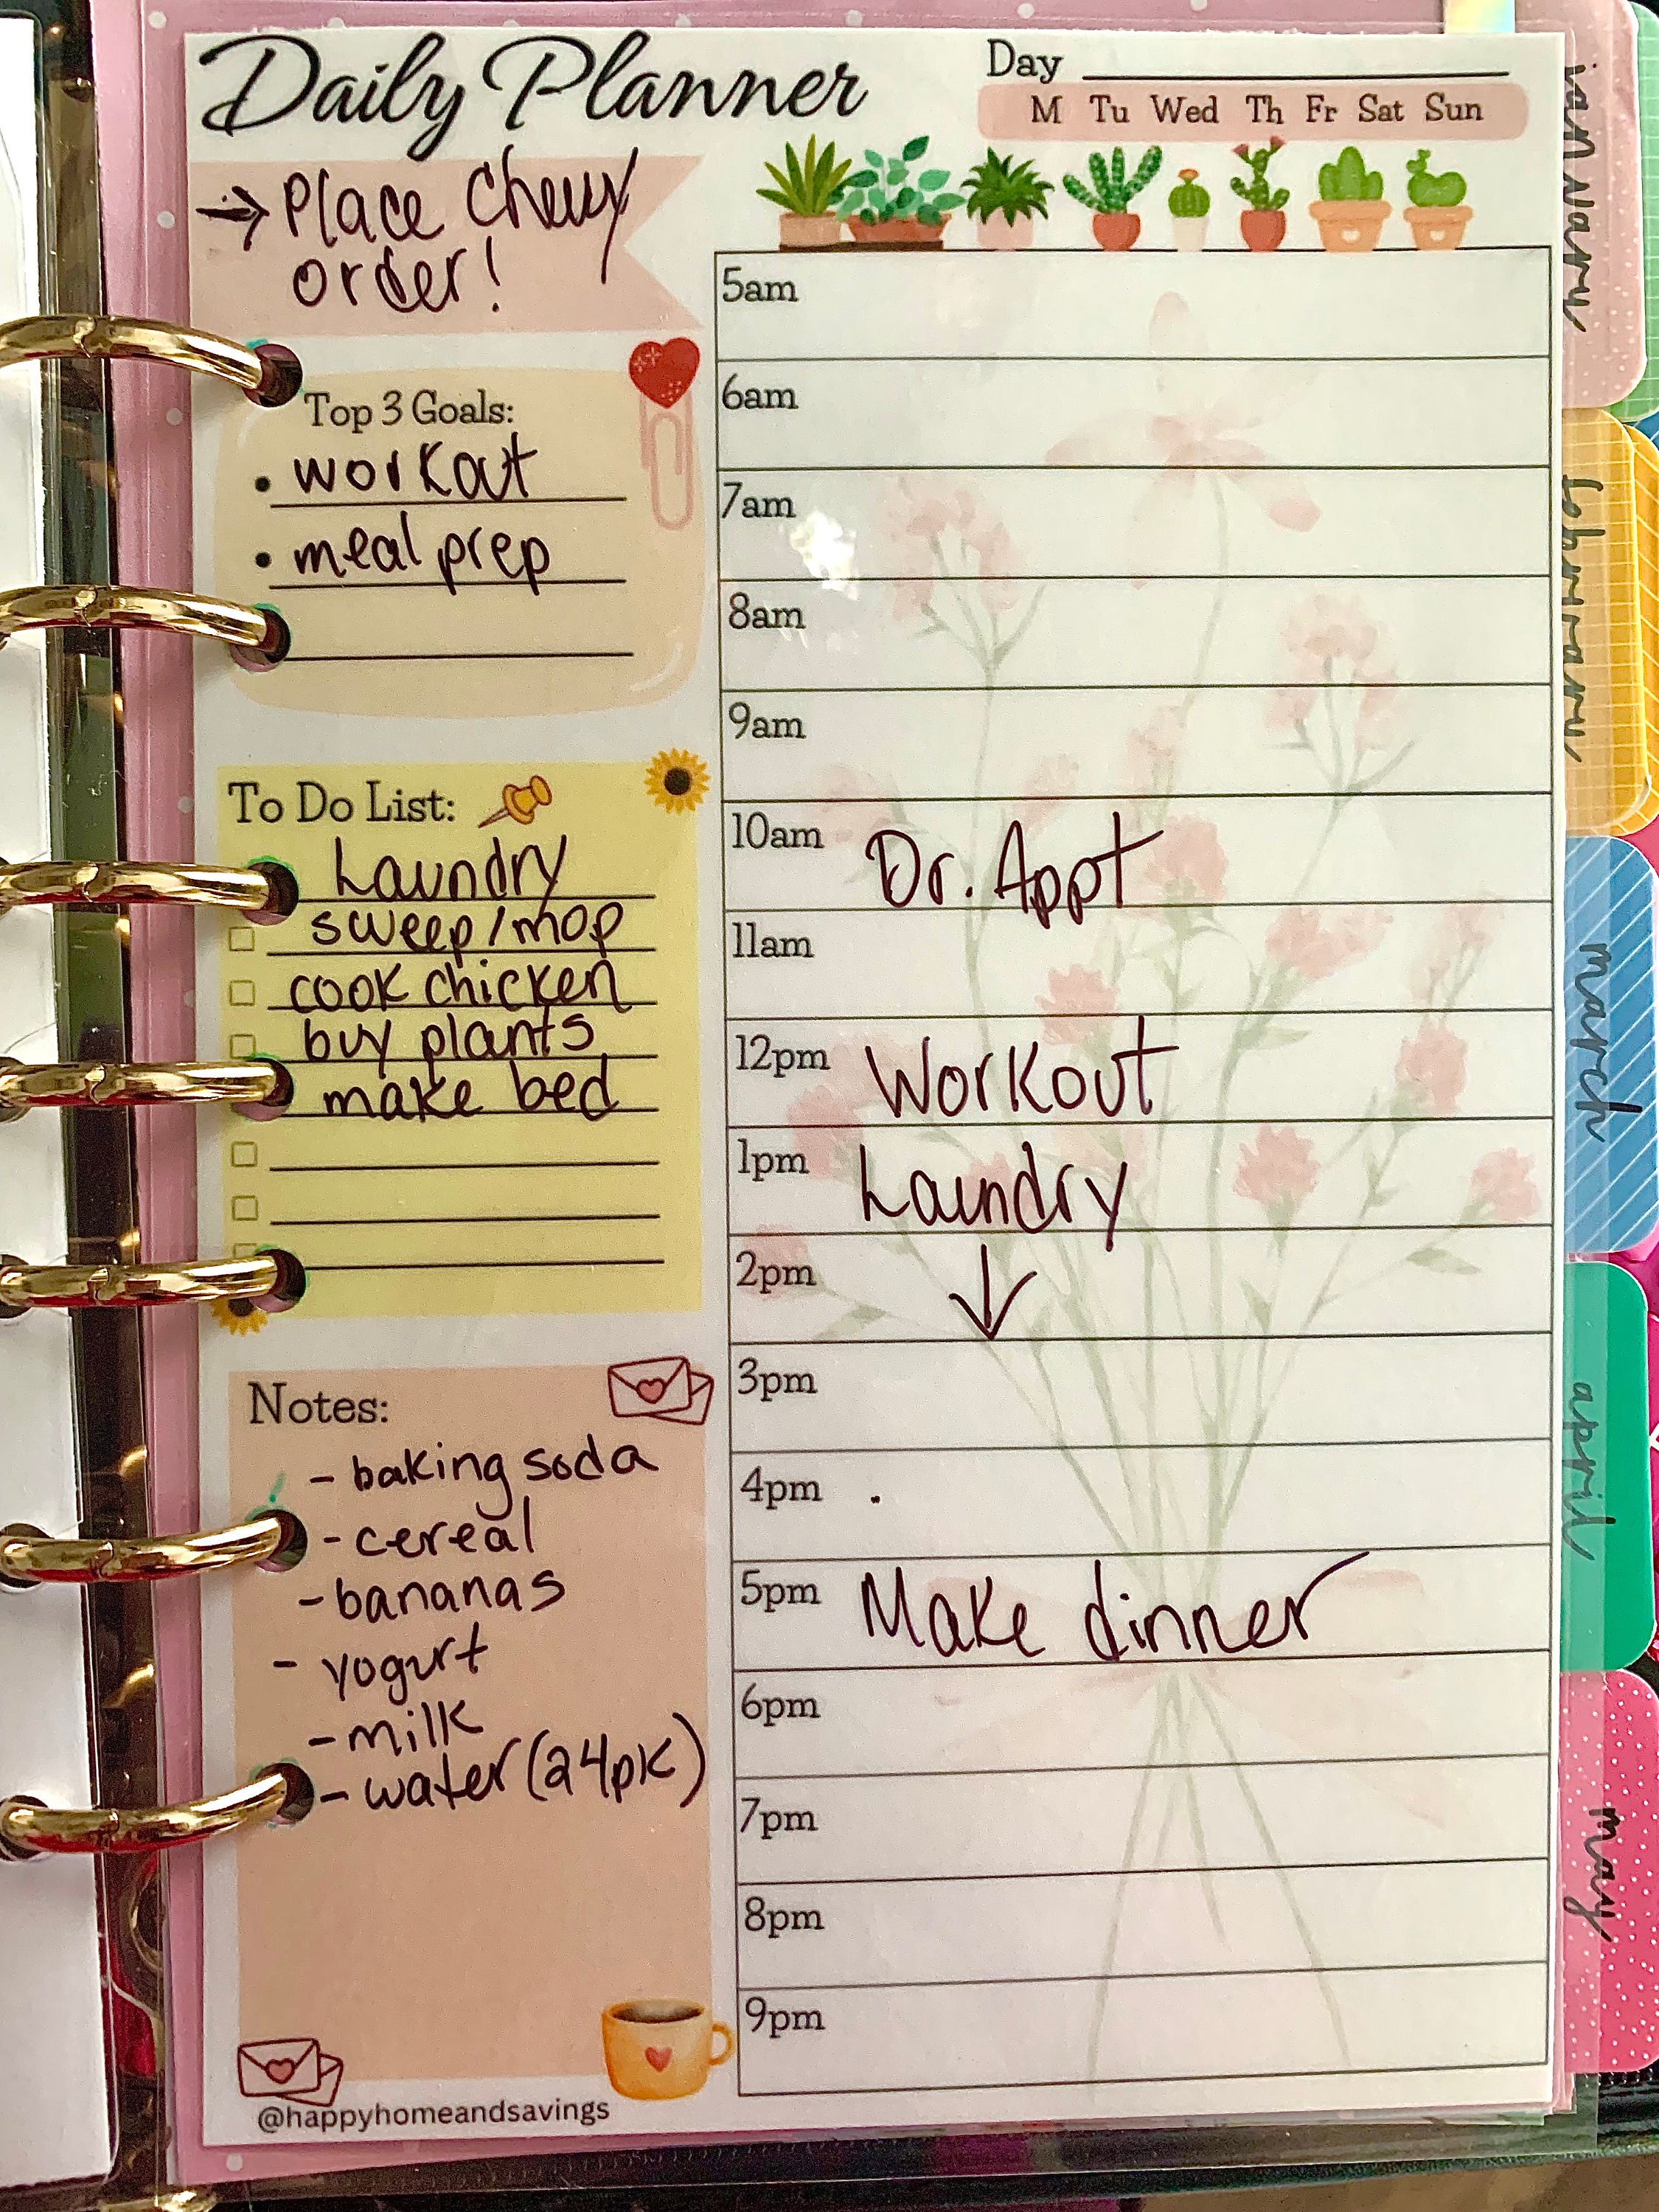 Daily Planner
Day
M Tu Wed Th Fr Sat Sun
→ Place Chewy
order!
Top 3 Goals:
• workout
• meal prep
To Do List:
Laundry
sweep/mop
cook chicken
buy plants
make bed
Notes:
- baking soda
- cereal
- bananas
- yogurt
- milk
- water (24pk)
@happyhomeandsavings
5am
6am
7am
8am
9am
10am Dr. Appt
11am
12pm Workout
1pm Laundry
2pm ↓
3pm
4pm .
5pm Make dinner
6pm
7pm
8pm
9pm
january
february
march
april
may